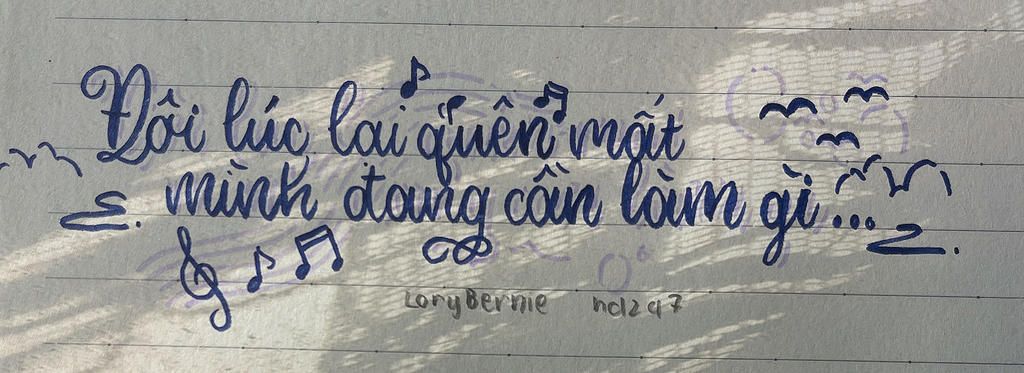 Đôi lúc lại quên mất
mình đang cần làm gì...
LoryBernie hd297